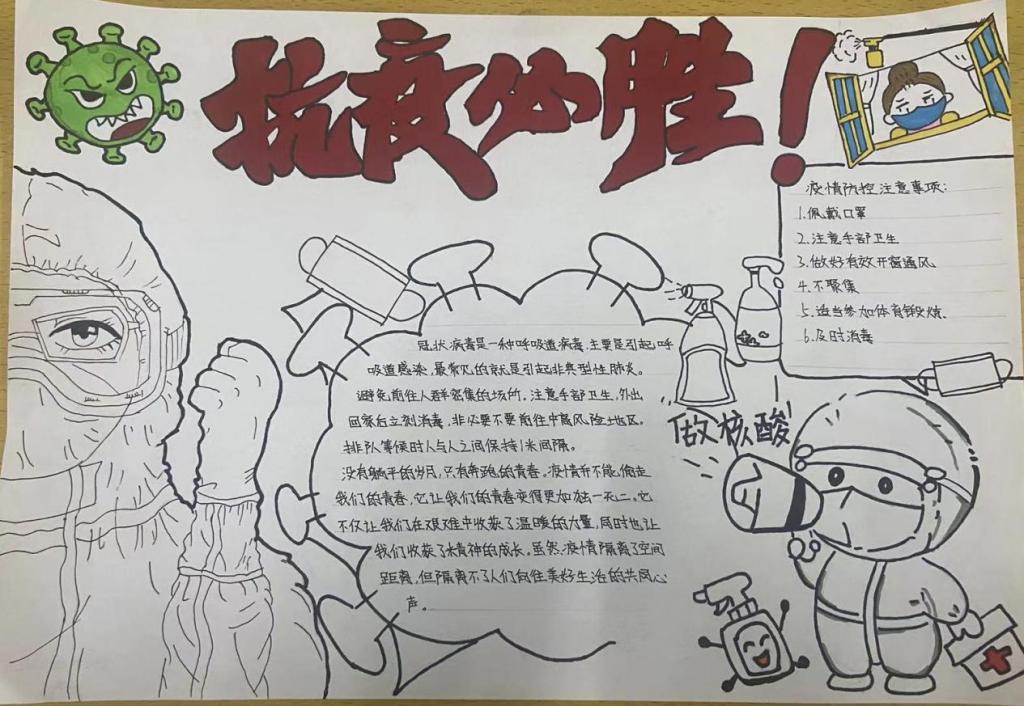 抗疫必胜！
疫情防控注意事项：
1.佩戴口罩
2.注意手部卫生
3.做好有效开窗通风
4.不聚集
5.适当参加体育锻炼.
6.及时消毒
冠状病毒是一种呼吸道病毒.主要是引起呼
吸道感染，最常见的就是引起非典型性肺炎。
避免前往人群密集的场所.注意手部卫生，外出
回家后立刻消毒，非必要不要前往中高风险地区，
排队等候时人与人之间保持1米间隔。
没有躺平的岁月，只有奔跑的青春。疫情并不能偷走
我们的青春，它让我们的青春变得更加独一无二。它
不仅让我们在艰难中收获了温暖的力量，同时也让
我们收获了精神的成长。虽然疫情隔离了空间
距离，但隔离不了人们向往美好生活的共同心
声。
做核酸